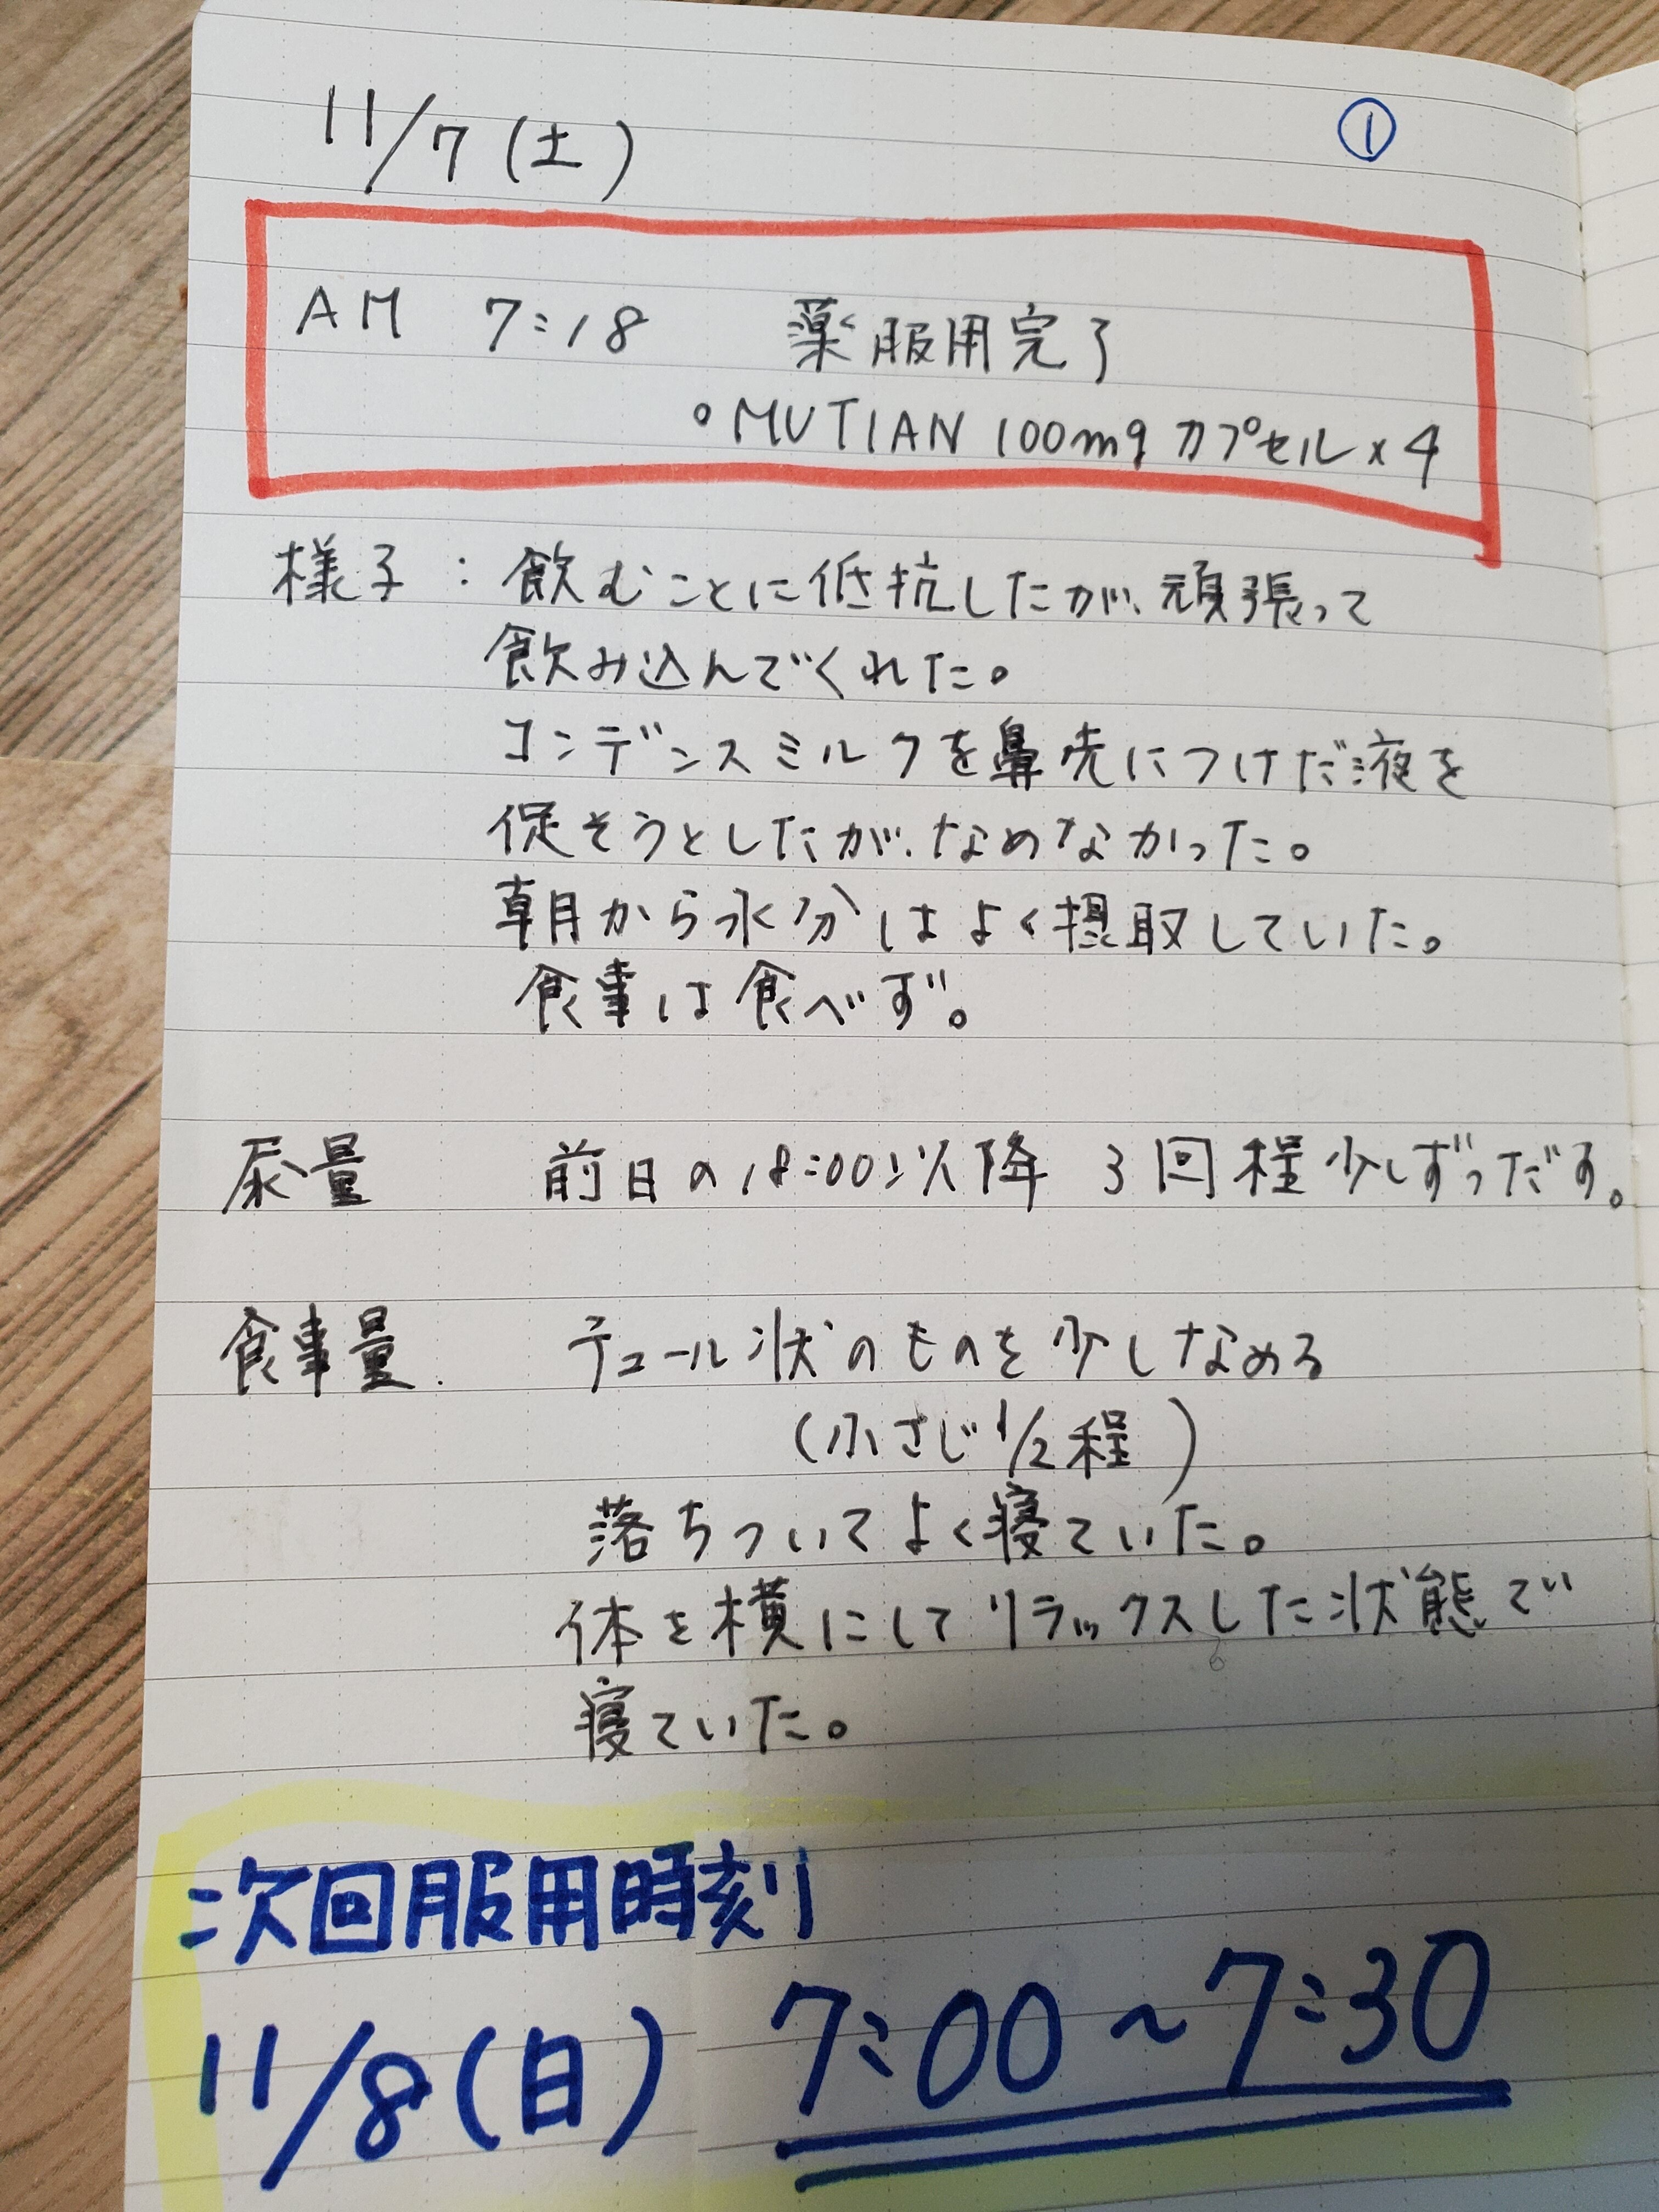 11/7(土) ①
AM 7:18 薬服用完了
○MUTIAN 100mg カプセル×4
様子:飲むことに低抗したが、頑張って
飲み込んでくれた。
コンデンスミルクを鼻先につけだ液を
促そうとしたが、なめなかった。
朝から水分はよく摂取していた。
食事は食べず。
尿量 前日の18:00以降 3回程少しずつだす。
食事量. チュール状のものを少しなめる
(小さじ1/2程)
落ちついてよく寝ていた。
体を横にしてリラックスした状態で
寝ていた。
次回服用時刻
11/8(日) 7:00~7:30